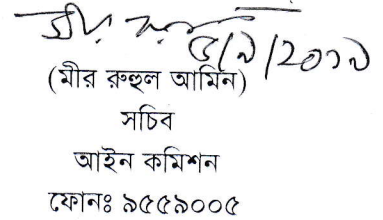 ৫/৯/২০১৯
(মীর রুহুল আমিন)
সচিব
আইন কমিশন
ফোনঃ ৯৫৫৯০০৫